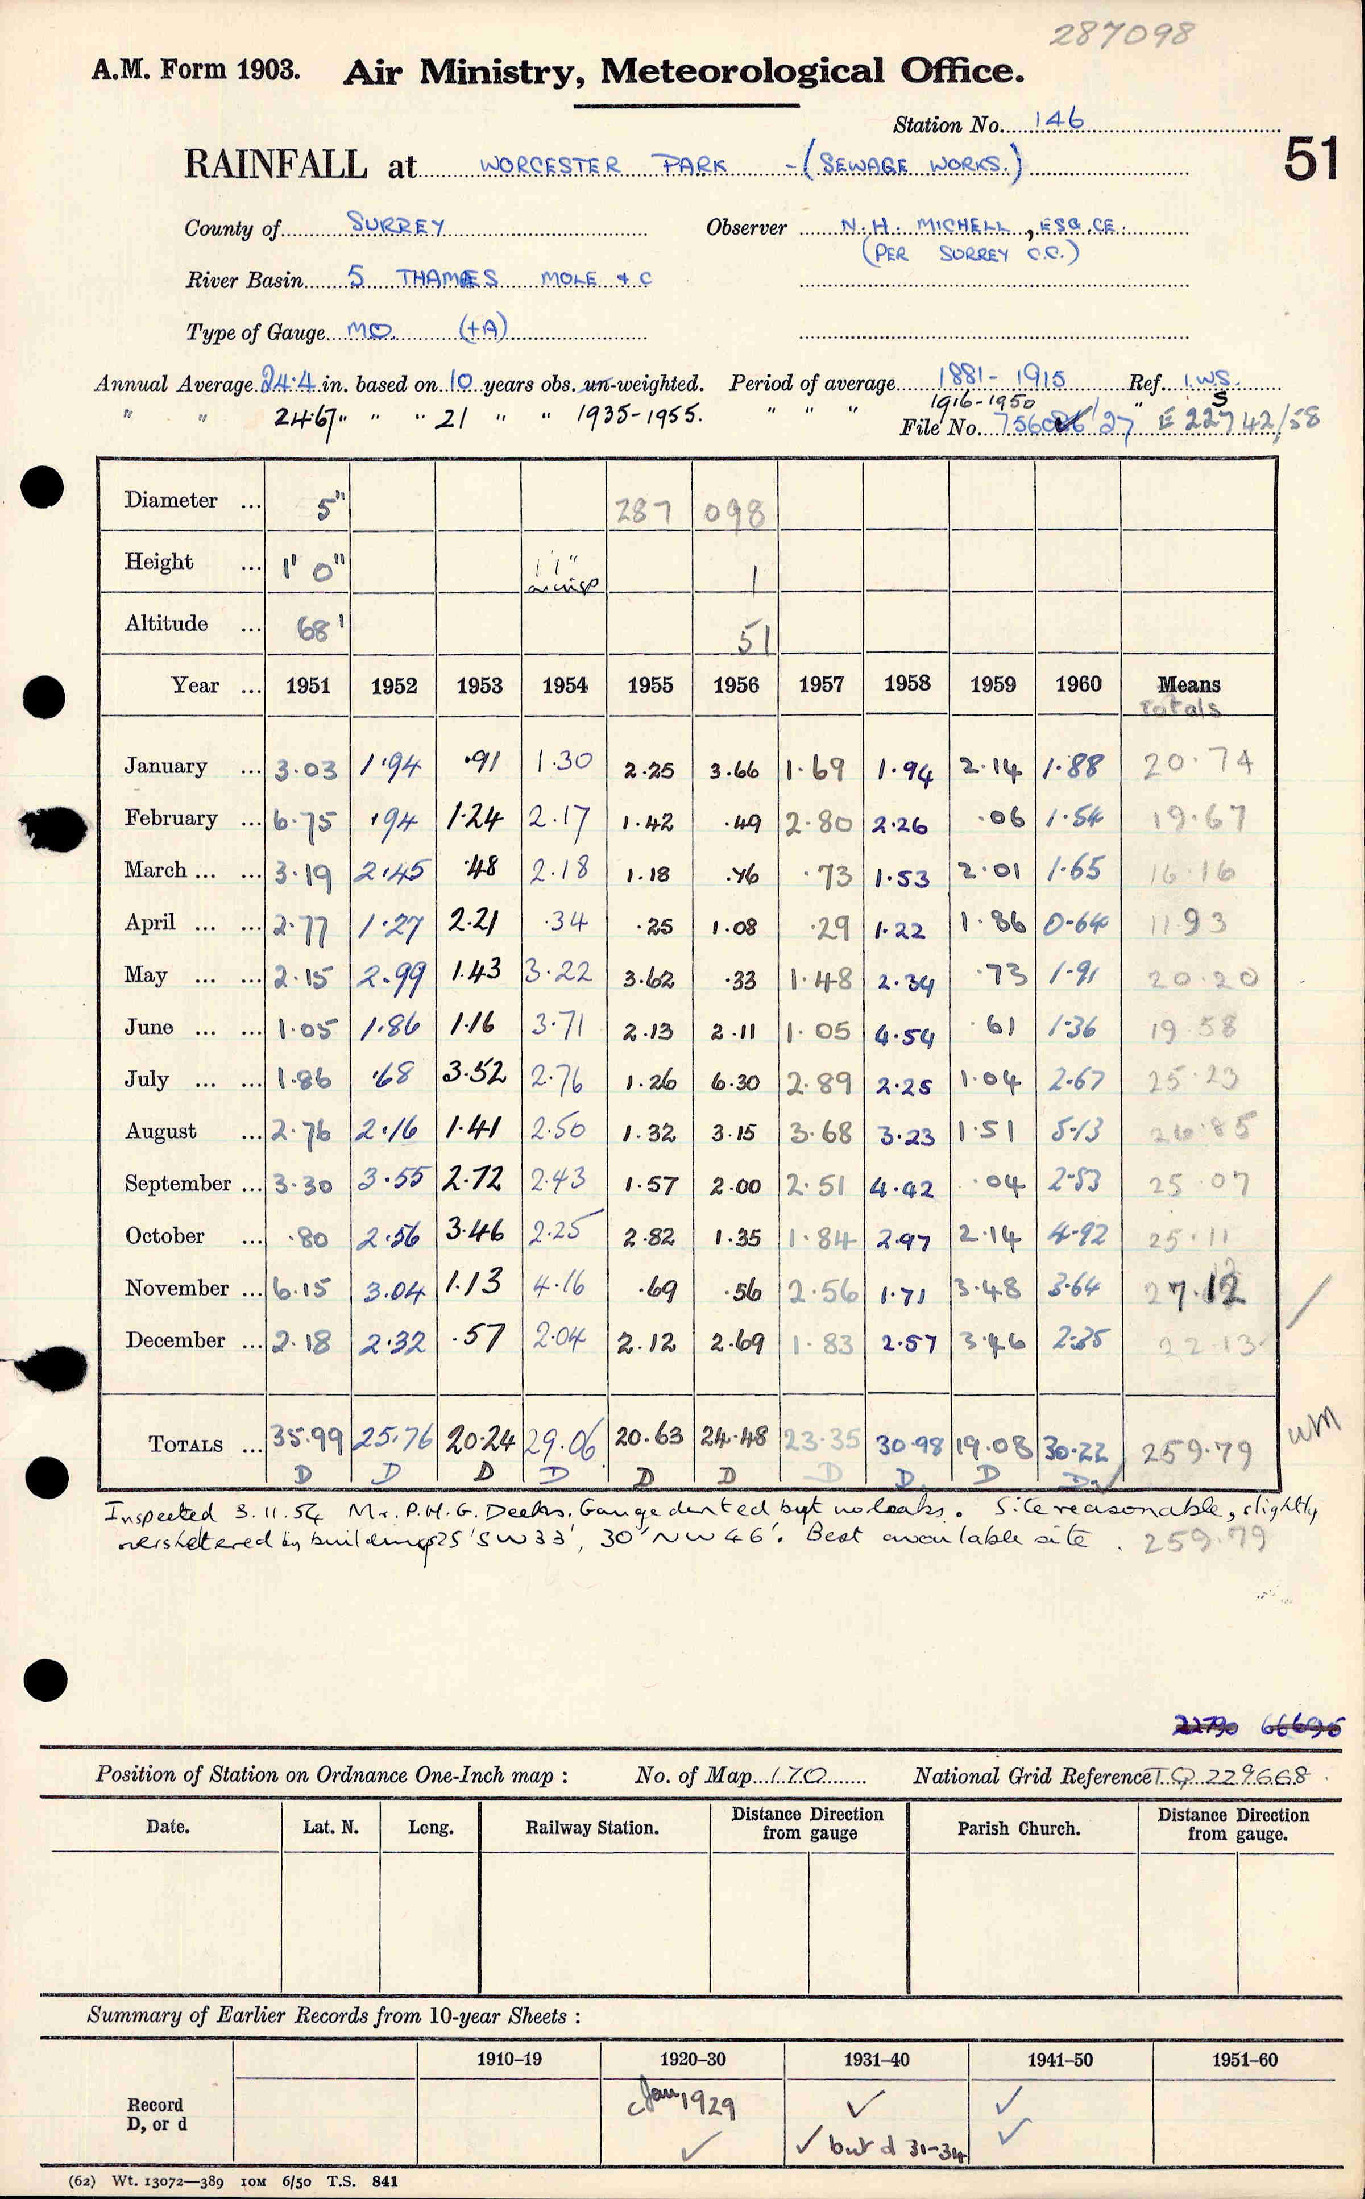 287098
A.M. Form 1903. Air Ministry, Meteorological Office.
Station No. 146
51
RAINFALL at WORCESTER PARK -(SEWAGE WORKS.)
County of SURREY Observer N.H. MICHELL, ESQ. CE.
(PER SURREY C.C.)
River Basin 5 THAMES MOLE + C
Type of Gauge MO. (+A)
Annual Average 24.4 in. based on 10 years obs. un-weighted. Period of average 1881-1915 Ref. I.W.S.
" " 24.67" " " 21 " " 1935-1955. " " " 1916-1950 " S
File No. 756086/27 E 22742/58
Diameter ... 5" 287 098
Height ... 1' 0" 11" 1
Altitude ... 68' 51
Year ... 1951 1952 1953 1954 1955 1956 1957 1958 1959 1960 Means
Totals
January ... 3.03 1.94 .91 1.30 2.25 3.66 1.69 1.94 2.14 1.88 20.74
February ... 6.75 .94 1.24 2.17 1.42 .49 2.80 2.26 .06 1.54 19.67
March ... ... 3.19 2.45 .48 2.18 1.18 .76 .73 1.53 2.01 1.65 16.16
April ... ... 2.77 1.27 2.21 .34 .25 1.08 .29 1.22 1.86 0.64 11.93
May ... ... 2.15 2.99 1.43 3.22 3.62 .33 1.48 2.34 .73 1.91 20.20
June ... ... 1.05 1.86 1.16 3.71 2.13 2.11 1.05 4.54 .61 1.36 19.58
July ... ... 1.86 .68 3.52 2.76 1.26 6.30 2.89 2.25 1.04 2.67 25.23
August ... 2.76 2.16 1.41 2.50 1.32 3.15 3.68 3.23 1.51 5.13 26.85
September ... 3.30 3.55 2.72 2.43 1.57 2.00 2.51 4.42 .04 2.53 25.07
October ... .80 2.56 3.46 2.25 2.82 1.35 1.84 2.97 2.14 4.92 25.11
November ... 6.15 3.04 1.13 4.16 .69 .56 2.56 1.71 3.48 3.64 27.12
December ... 2.18 2.32 .57 2.04 2.12 2.69 1.83 2.57 3.46 2.35 22.13
TOTALS ... 35.99 25.76 20.24 29.06 20.63 24.48 23.35 30.98 19.08 30.22 259.79
D D D D D D D D D D
WM
Inspected 3.11.54 Mr. P.H.G. Deeks. Gauge dented but no leaks. Site reasonable, slightly
oversheltered by buildings 25' SW 33', 30' NW 46'. Best available site. 259.79
22790 66695
Position of Station on Ordnance One-Inch map : No. of Map 170 National Grid Reference TQ 229668
Date. Lat. N. Long. Railway Station. Distance Direction from gauge Parish Church. Distance Direction from gauge.
Summary of Earlier Records from 10-year Sheets :
1910–19 1920–30 1931–40 1941–50 1951–60
Record Jan 1929 ✓ ✓
D, or d ✓ ✓ but d 31-34 ✓
(62) Wt. 13072—389 10M 6/50 T.S. 841